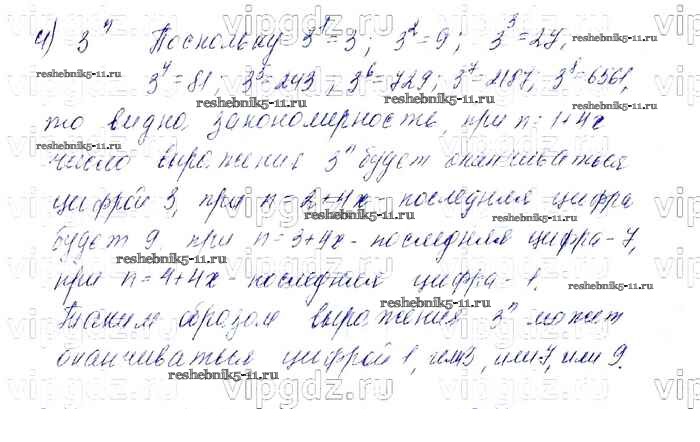 4) 3ⁿ Поскольку 3¹=3; 3²=9; 3³=27,
3⁴=81; 3⁵=243; 3⁶=729; 3⁷=2187; 3⁸=6561,
то видна закономерность, при n=1+4x
число выражения 3ⁿ будет оканчиваться
цифрой 3, при n=2+4x - последняя цифра
будет 9, при n=3+4x - последняя цифра - 7,
при n=4+4x - последняя цифра - 1.
Таким образом выражения 3ⁿ может
оканчиваться цифрой 1, или 3, или 7, или 9.
vipgdz.ru
reshebnik5-11.ru